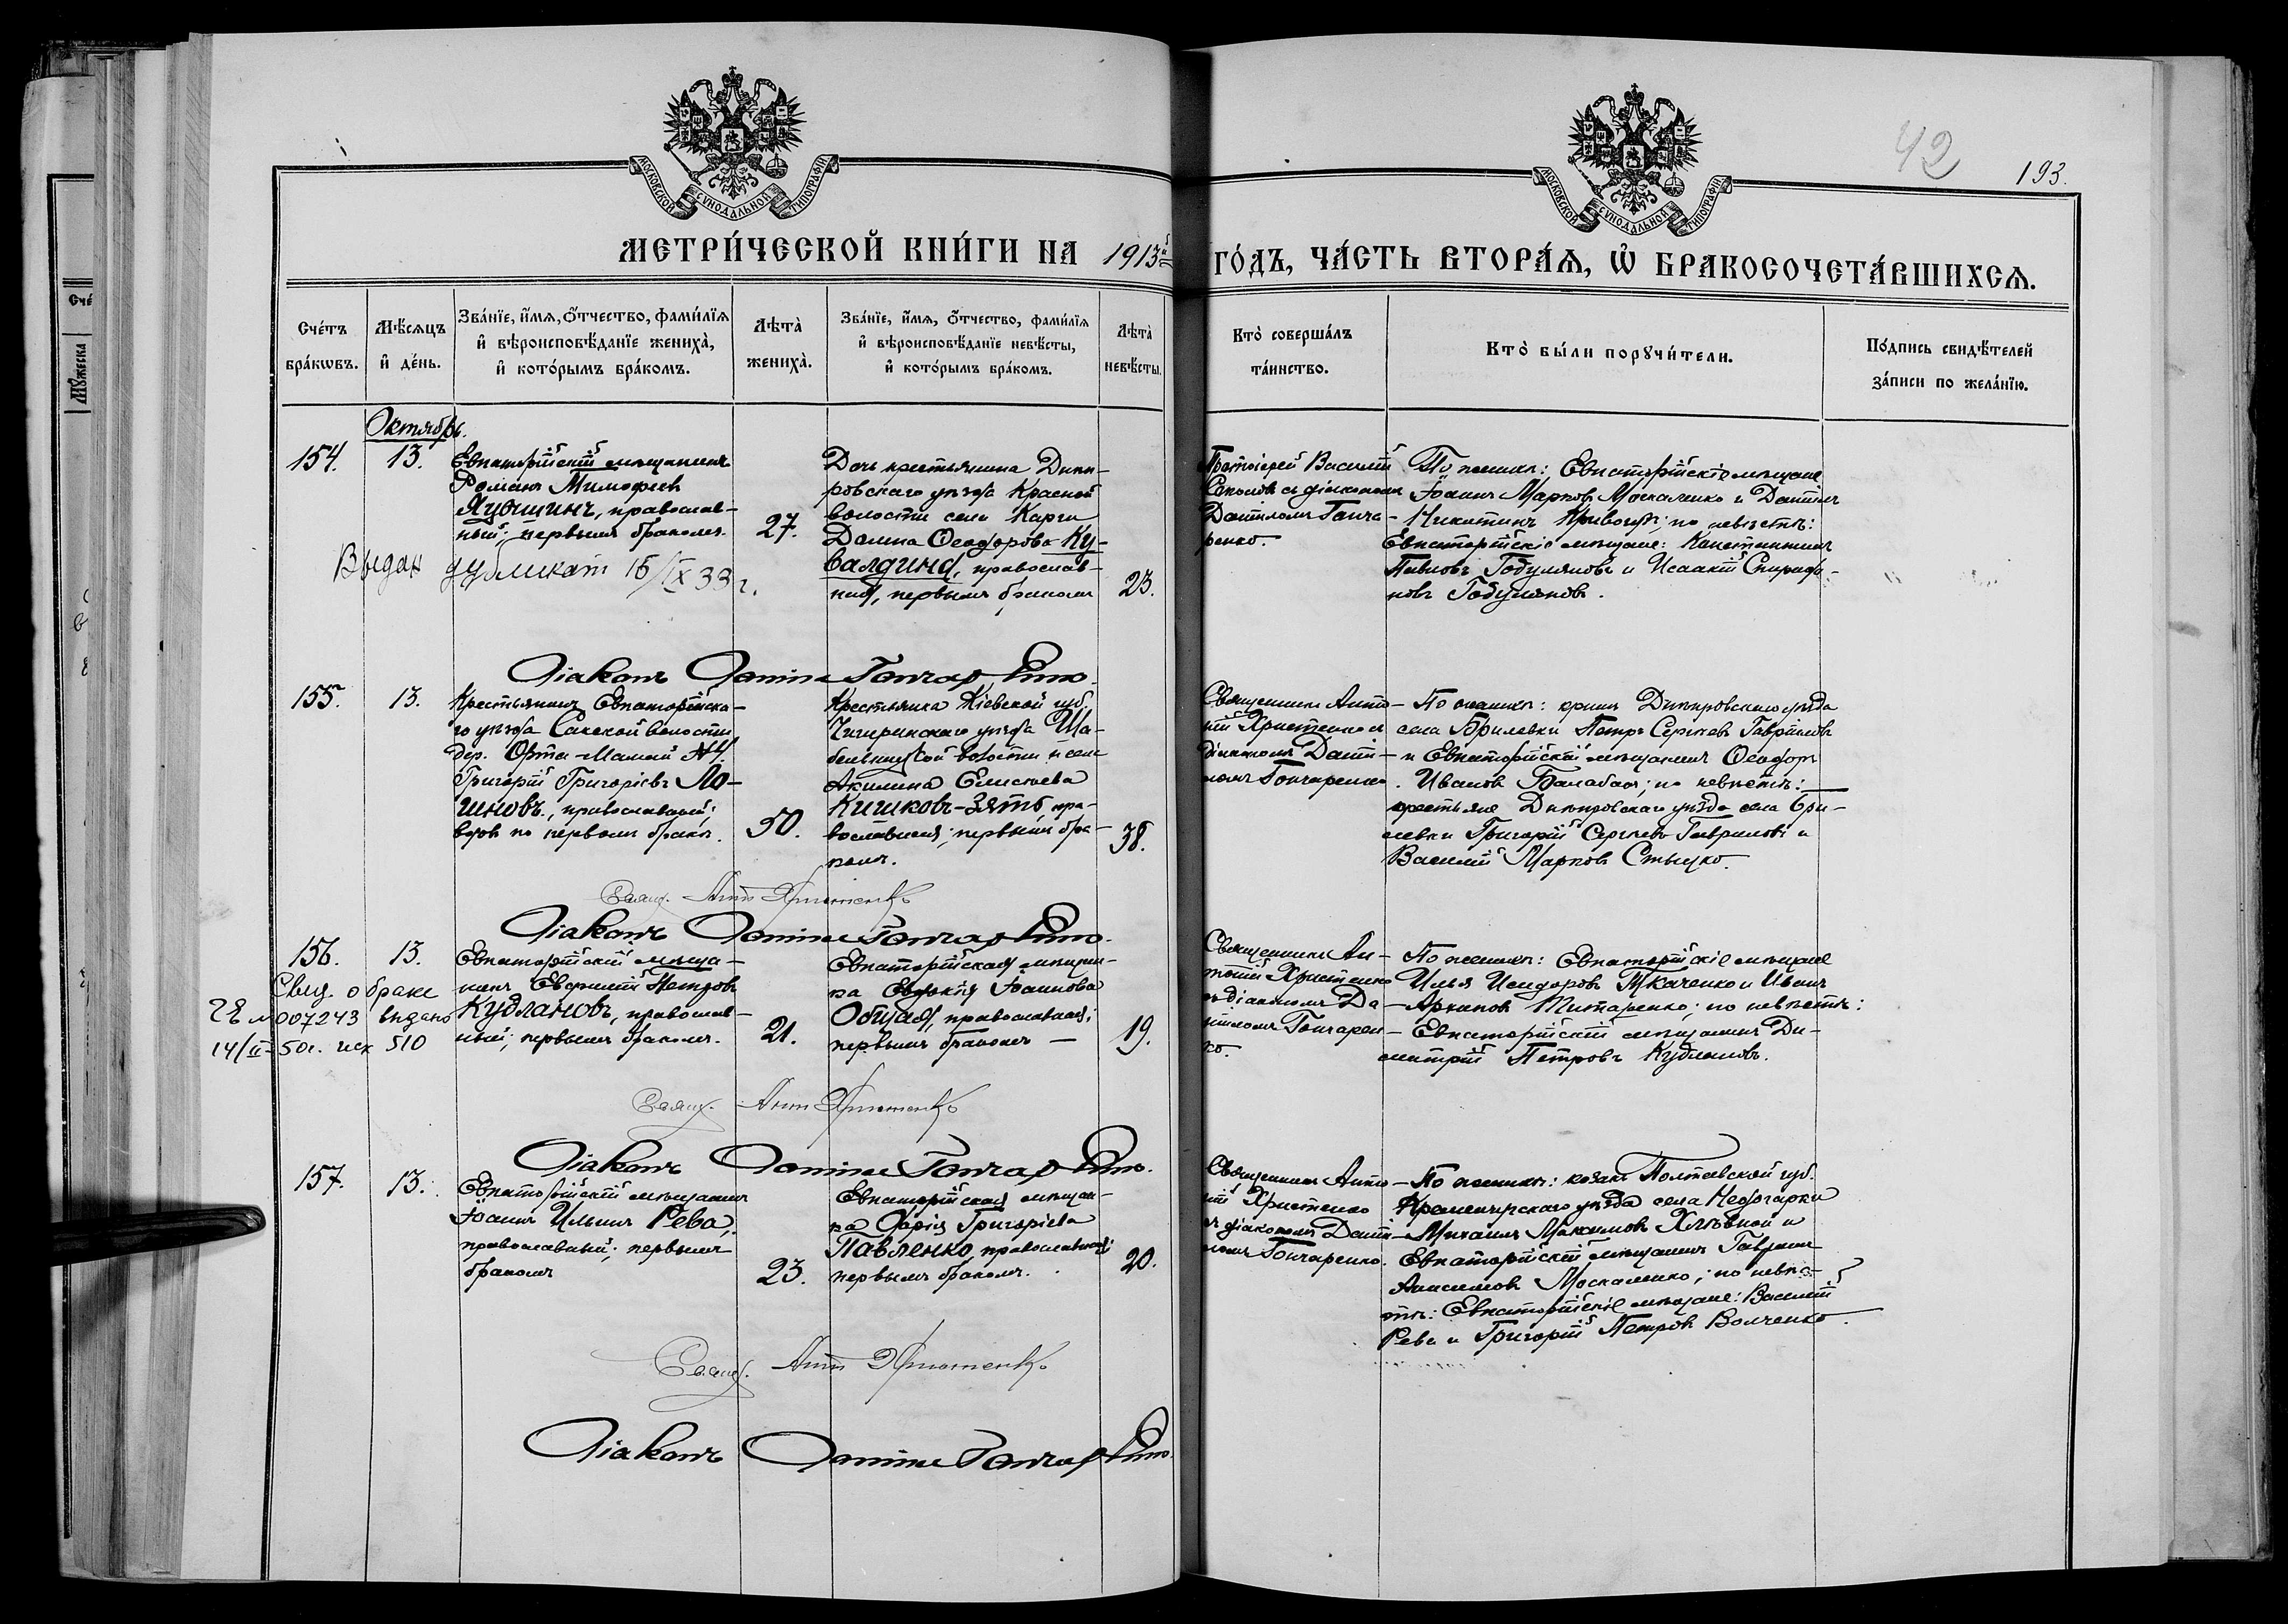 МОСКОВСКОЙ СѴНОДАЛЬНОЙ ТИПОГРАФІИ
МОСКОВСКОЙ СѴНОДАЛЬНОЙ ТИПОГРАФІИ
42
193.
МЕТРИ́ЧЕСКОЙ КНИ́ГИ НА 1913й
ГО́ДЪ, ЧА́СТЬ ВТОРА́Ѧ, Ѡ҆ БРАКОСОЧЕТА́ВШИХСѦ.
Счéтъ
брáкѡвъ.
Мѣ́сяцъ
и҆ дéнь.
Звáнїе, и҆́мѧ, ѻ҆́тчество, фами́лїѧ
и҆ вѣроисповѣ́данїе женихà,
и҆ кото́рымъ брáкомъ.
Лѣтà
женихà.
Звáнїе, и҆́мѧ, ѻ҆́тчество, фами́лїѧ
и҆ вѣроисповѣ́данїе невѣ́сты,
и҆ кото́рымъ брáкомъ.
Лѣтà
невѣ́сты.
Ктò совершáлъ
тáинство.
Ктò бы́ли порꙋчи́тели.
По́дпись свидѣ́телей
зáписи по желáнїю.
Октябрь.
154.
13.
Евпаторійскій мѣщанинъ
Романъ Тимофеев
Якушинъ, православ-
ный; первымъ бракомъ.
27.
Дочь крестьянина Днѣп-
ровскаго уѣзда Красной
волости села Карги
Домна Ѳеодорова Ку-
валдина, православ-
ная, первымъ бракомъ
23.
Протоіерей Василій
Соколов съ діакономъ
Даніиломъ Гонча-
ренко.
По женихѣ: Евпаторійскіе мѣщане
Іоаннъ Марков Москаленко и Даніилъ
Никитинъ Кривошея; по невѣстѣ:
Евпаторійскіе мѣщане: Константинъ
Павловъ Гобуляковъ и Исаакій Спиридо-
новъ Гобуляковъ.
Выдан дубликат 16/IX 33 г.
Діаконъ Даніилъ Гончаренко.
155.
13.
Крестьянинъ Евпаторійска-
го уѣзда Сакской волости
дер. Орта-Мамай №1
Григорій Григоріевъ Ло-
шновъ, православный;
вдов по первомъ бракѣ.
50.
Крестьянка Кіевской губ.
Чигиринскаго уѣзда Ша-
бельницкой волости и села
Акилина Елисеева
Кишковъ-Зять, пра-
вославная; первымъ бра-
комъ.
38.
Священникъ Анто-
ній Христенко съ
діакономъ Даніи-
ломъ Гончаренко.
По женихѣ: крест. Днѣпровскаго уѣзда
села Брилевки Петръ Сергѣев Гаврилов
и Евпаторійскій мѣщанинъ Ѳеодоръ
Иванов Балабан; по невѣстѣ:
крестьяне Днѣпровскаго уѣзда села Бри-
левки Григорій Сергѣевъ Гаврилов и
Василій Марков Стыцко.
Свящ. Антоній Христенко
Діаконъ Даніилъ Гончаренко.
156.
13.
Евпаторійскій мѣща-
нинъ Евфимій Петров
Кудлановъ, православ-
ный; первымъ бракомъ.
21.
Евпаторійская мѣщан-
ка Евдокія Іоаннова
Общая, православная;
первымъ бракомъ
19.
Священникъ Ан-
тоній Христенко
съ діакономъ Да-
ніиломъ Гончарен-
ко.
По женихѣ: Евпаторійскіе мѣщане
Илья Исидоров Ткаченко и Иванъ
Архипов Титаренко; по невѣстѣ:
Евпаторійскій мѣщанинъ Ди-
митрій Петровъ Кудлановъ.
Свид. о браке
007243 выдано
14/II-50г. исх 510
Свящ. Антоній Христенко
Діаконъ Даніилъ Гончаренко.
157.
13.
Евпаторійскій мѣщанинъ
Іоаннъ Ильинъ Рева,
православный; первымъ
бракомъ
23.
Евпаторійская мѣщан-
ка Дарія Григоріева
Павленко, православная;
первымъ бракомъ.
20.
Священникъ Анто-
ній Христенко
съ діакономъ Даніи-
ломъ Гончаренко.
По женихѣ: козакъ Полтавской губ.
Кременчугскаго уѣзда села Недогарки
Михаилъ Максимовъ Хлѣвной и
Евпаторійскій мѣщанинъ Гавріилъ
Анисимов Москаленко; по невѣ-
стѣ: Евпаторійскіе мѣщане: Василій
Рева и Григорій Петров Волченко.
Свящ. Антоній Христенко
Діаконъ Даніилъ Гончаренко.